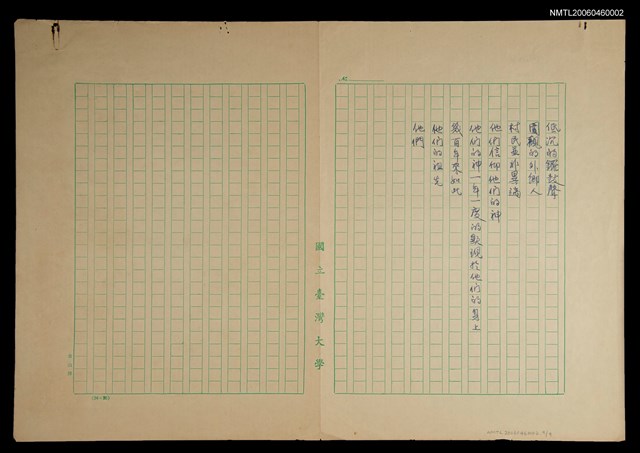 NMTL20060460002
低沉的鑼鼓聲
圍觀的外鄉人
村民是非異端
他們信仰他們的神
他們的神一年一度的顯現於他們的身上
幾百年來如此
他們的祖先
他們
國立臺灣大學